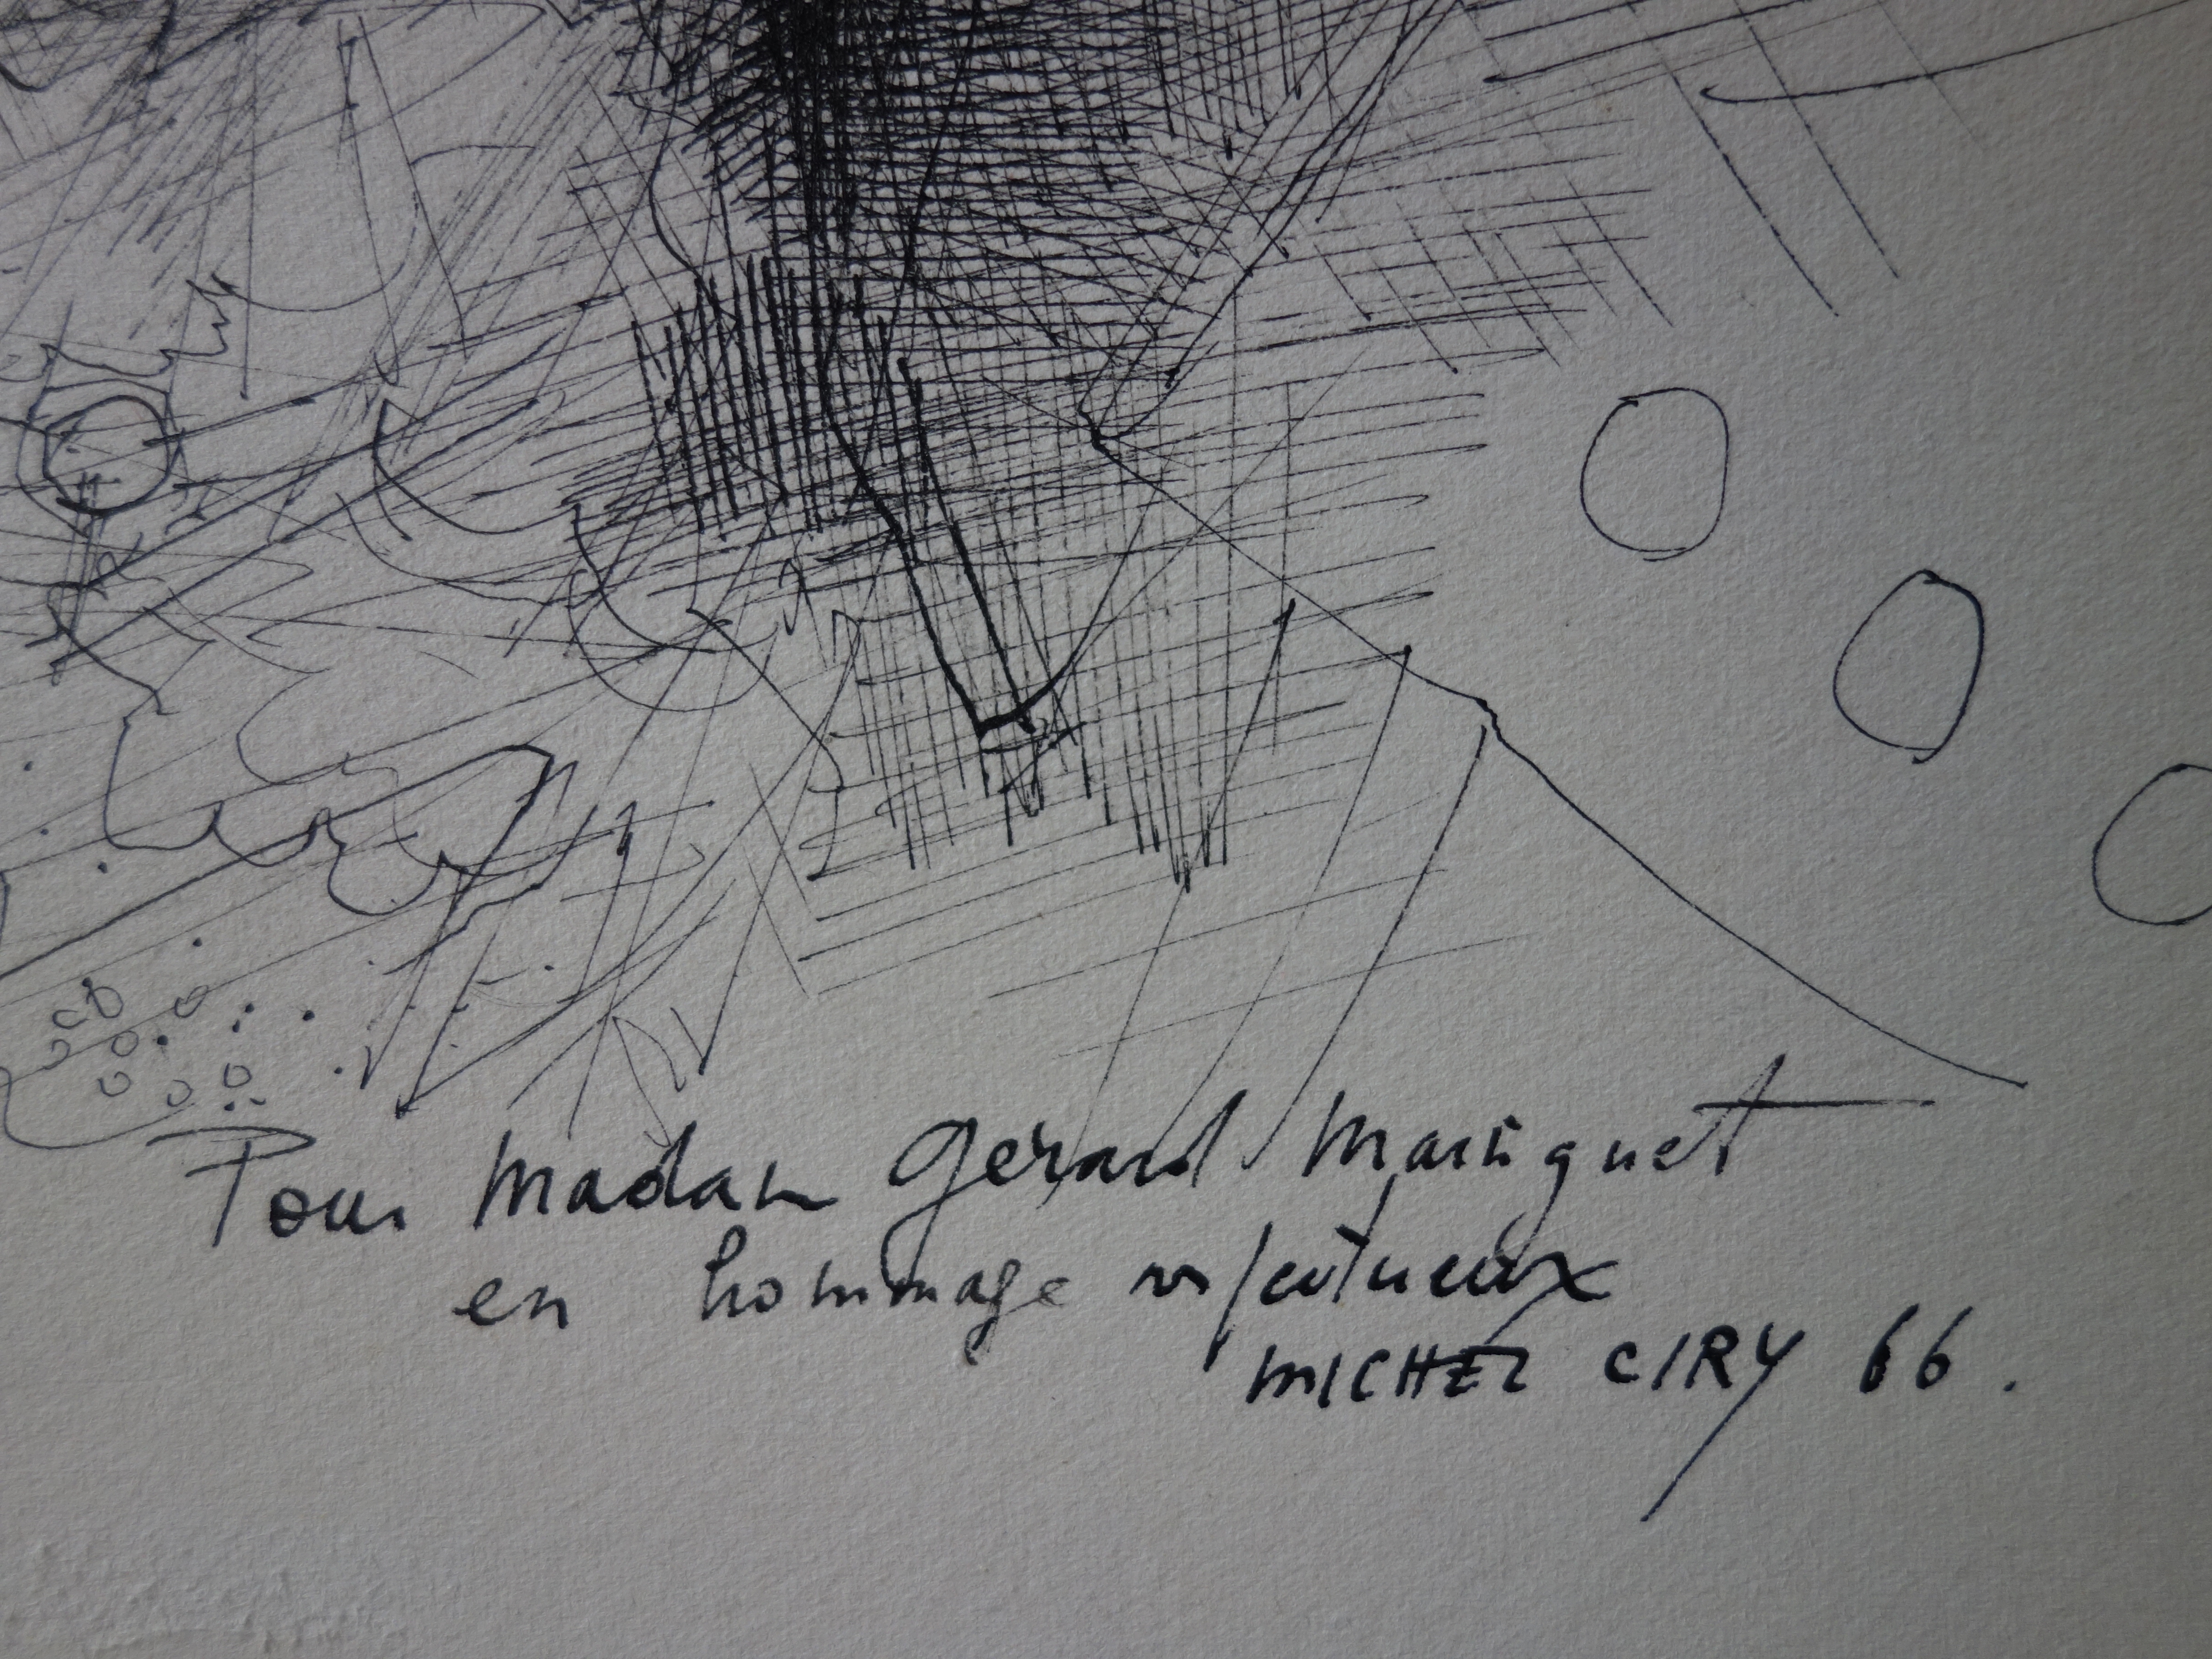 Pour Madame Gérard
en hommage respectueux
MICHEL CIRY 66.